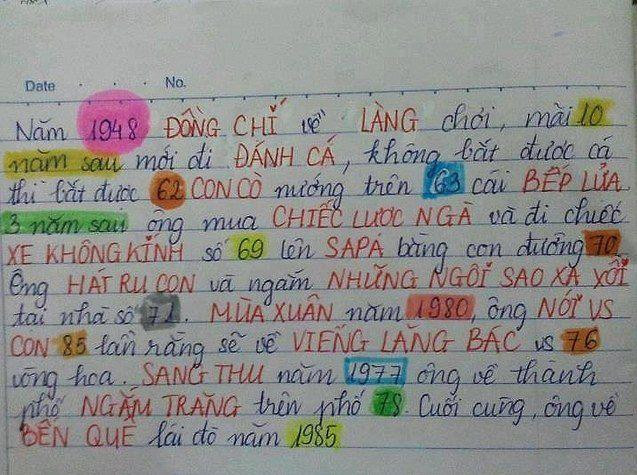 Date No.
Năm 1948 ĐỒNG CHÍ về LÀNG chơi, mãi 10
năm sau mới đi ĐÁNH CÁ, không bắt được cá
thì bắt được 62 CON CÒ nướng trên 63 cái BẾP LỬA
3 năm sau ông mua CHIẾC LƯỢC NGÀ và đi chuốc
XE KHÔNG KÍNH số 69 lên SAPA bằng con đường 70
Ông HÁT RU CON và ngắm NHỮNG NGÔI SAO XA XÔI
tại nhà số 71. MÙA XUÂN năm 1980, ông NÓI VS
CON 85 lần rằng sẽ về VIẾNG LĂNG BÁC vs 76
vòng hoa. SANG THU năm 1977 ông về thành
phố NGẮM TRĂNG trên phố 78. Cuối cùng, ông về
BẾN QUÊ lái đò năm 1985